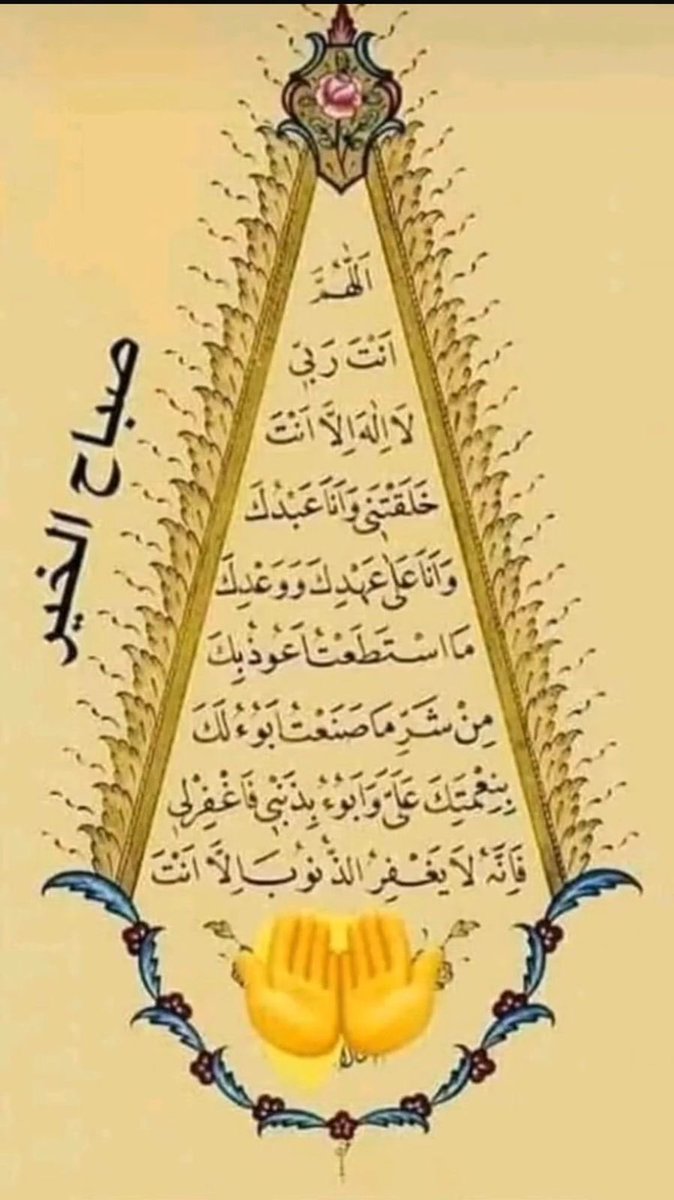 اَللّٰهُمَّ
اَنْتَ رَبِّى
لَا اِلٰهَ اِلَّا اَنْتَ
خَلَقْتَنِى وَاَنَا عَبْدُكَ
وَاَنَا عَلٰى عَهْدِكَ وَوَعْدِكَ
مَا اسْتَطَعْتُ اَعُوذُ بِكَ
مِنْ شَرِّ مَا صَنَعْتُ اَبُوءُ لَكَ
بِنِعْمَتِكَ عَلَىَّ وَاَبُوءُ بِذَنْبِى فَاغْفِرْلِى
فَاِنَّهُ لَا يَغْفِرُ الذُّنُوبَ اِلَّا اَنْتَ
صباح الخير